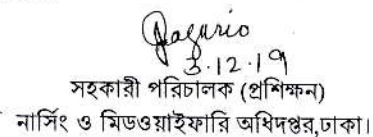 3.12.19
সহকারী পরিচালক (প্রশিক্ষন)
নার্সিং ও মিডওয়াইফারি অধিদপ্তর,ঢাকা।